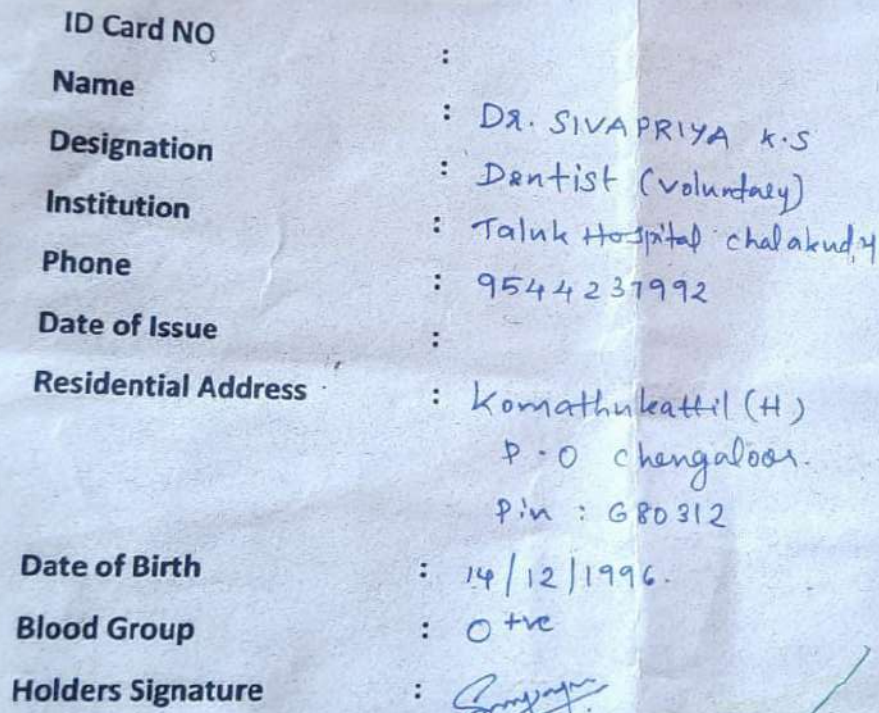 ID Card NO :
Name : DR. SIVAPRIYA K.S
Designation : Dentist (Voluntary)
Institution : Taluk Hospital chalakudy
Phone : 9544237992
Date of Issue :
Residential Address : Komathukattil (H)
P.O chengaloor.
Pin : 680312
Date of Birth : 14/12/1996.
Blood Group : O +ve
Holders Signature :